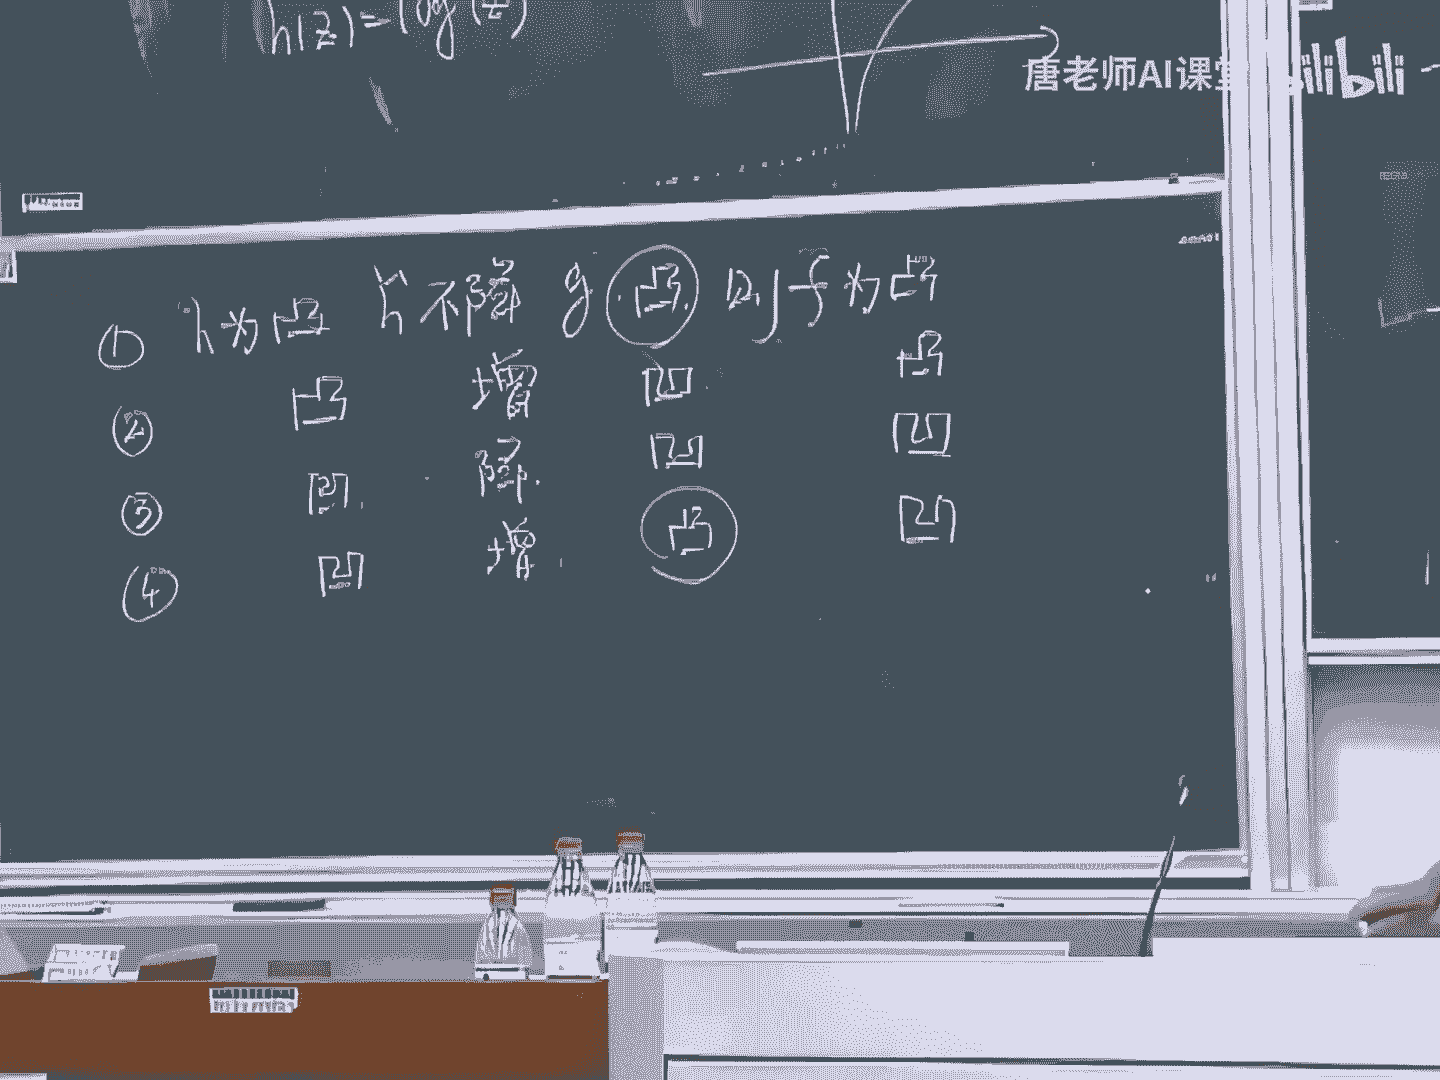 h(z)=log(z)
唐老师AI课堂 bilibili
① h为凸 h̃不降 g凸 则f为凸
② 凸 增 凹 凸
③ 凹 降 凹 凹
④ 凹 增 凸 凹